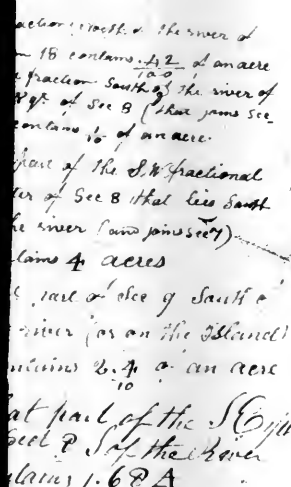 action North of the river of
n 18 contains 42/100 of an acre
fraction South of the river of
qr of Sec 8 (that joins Sec
contains 1/10 of an acre.
part of the S.W. fractional
ter of Sec 8 that lies South
he river (and joins Sec 7)
tains 4 acres
part of Sec 9 South o
river (or on the Island)
ntains 2.4/10 of an acre
at part of the S E
Sect 8 S of the River
tains 1.68 A